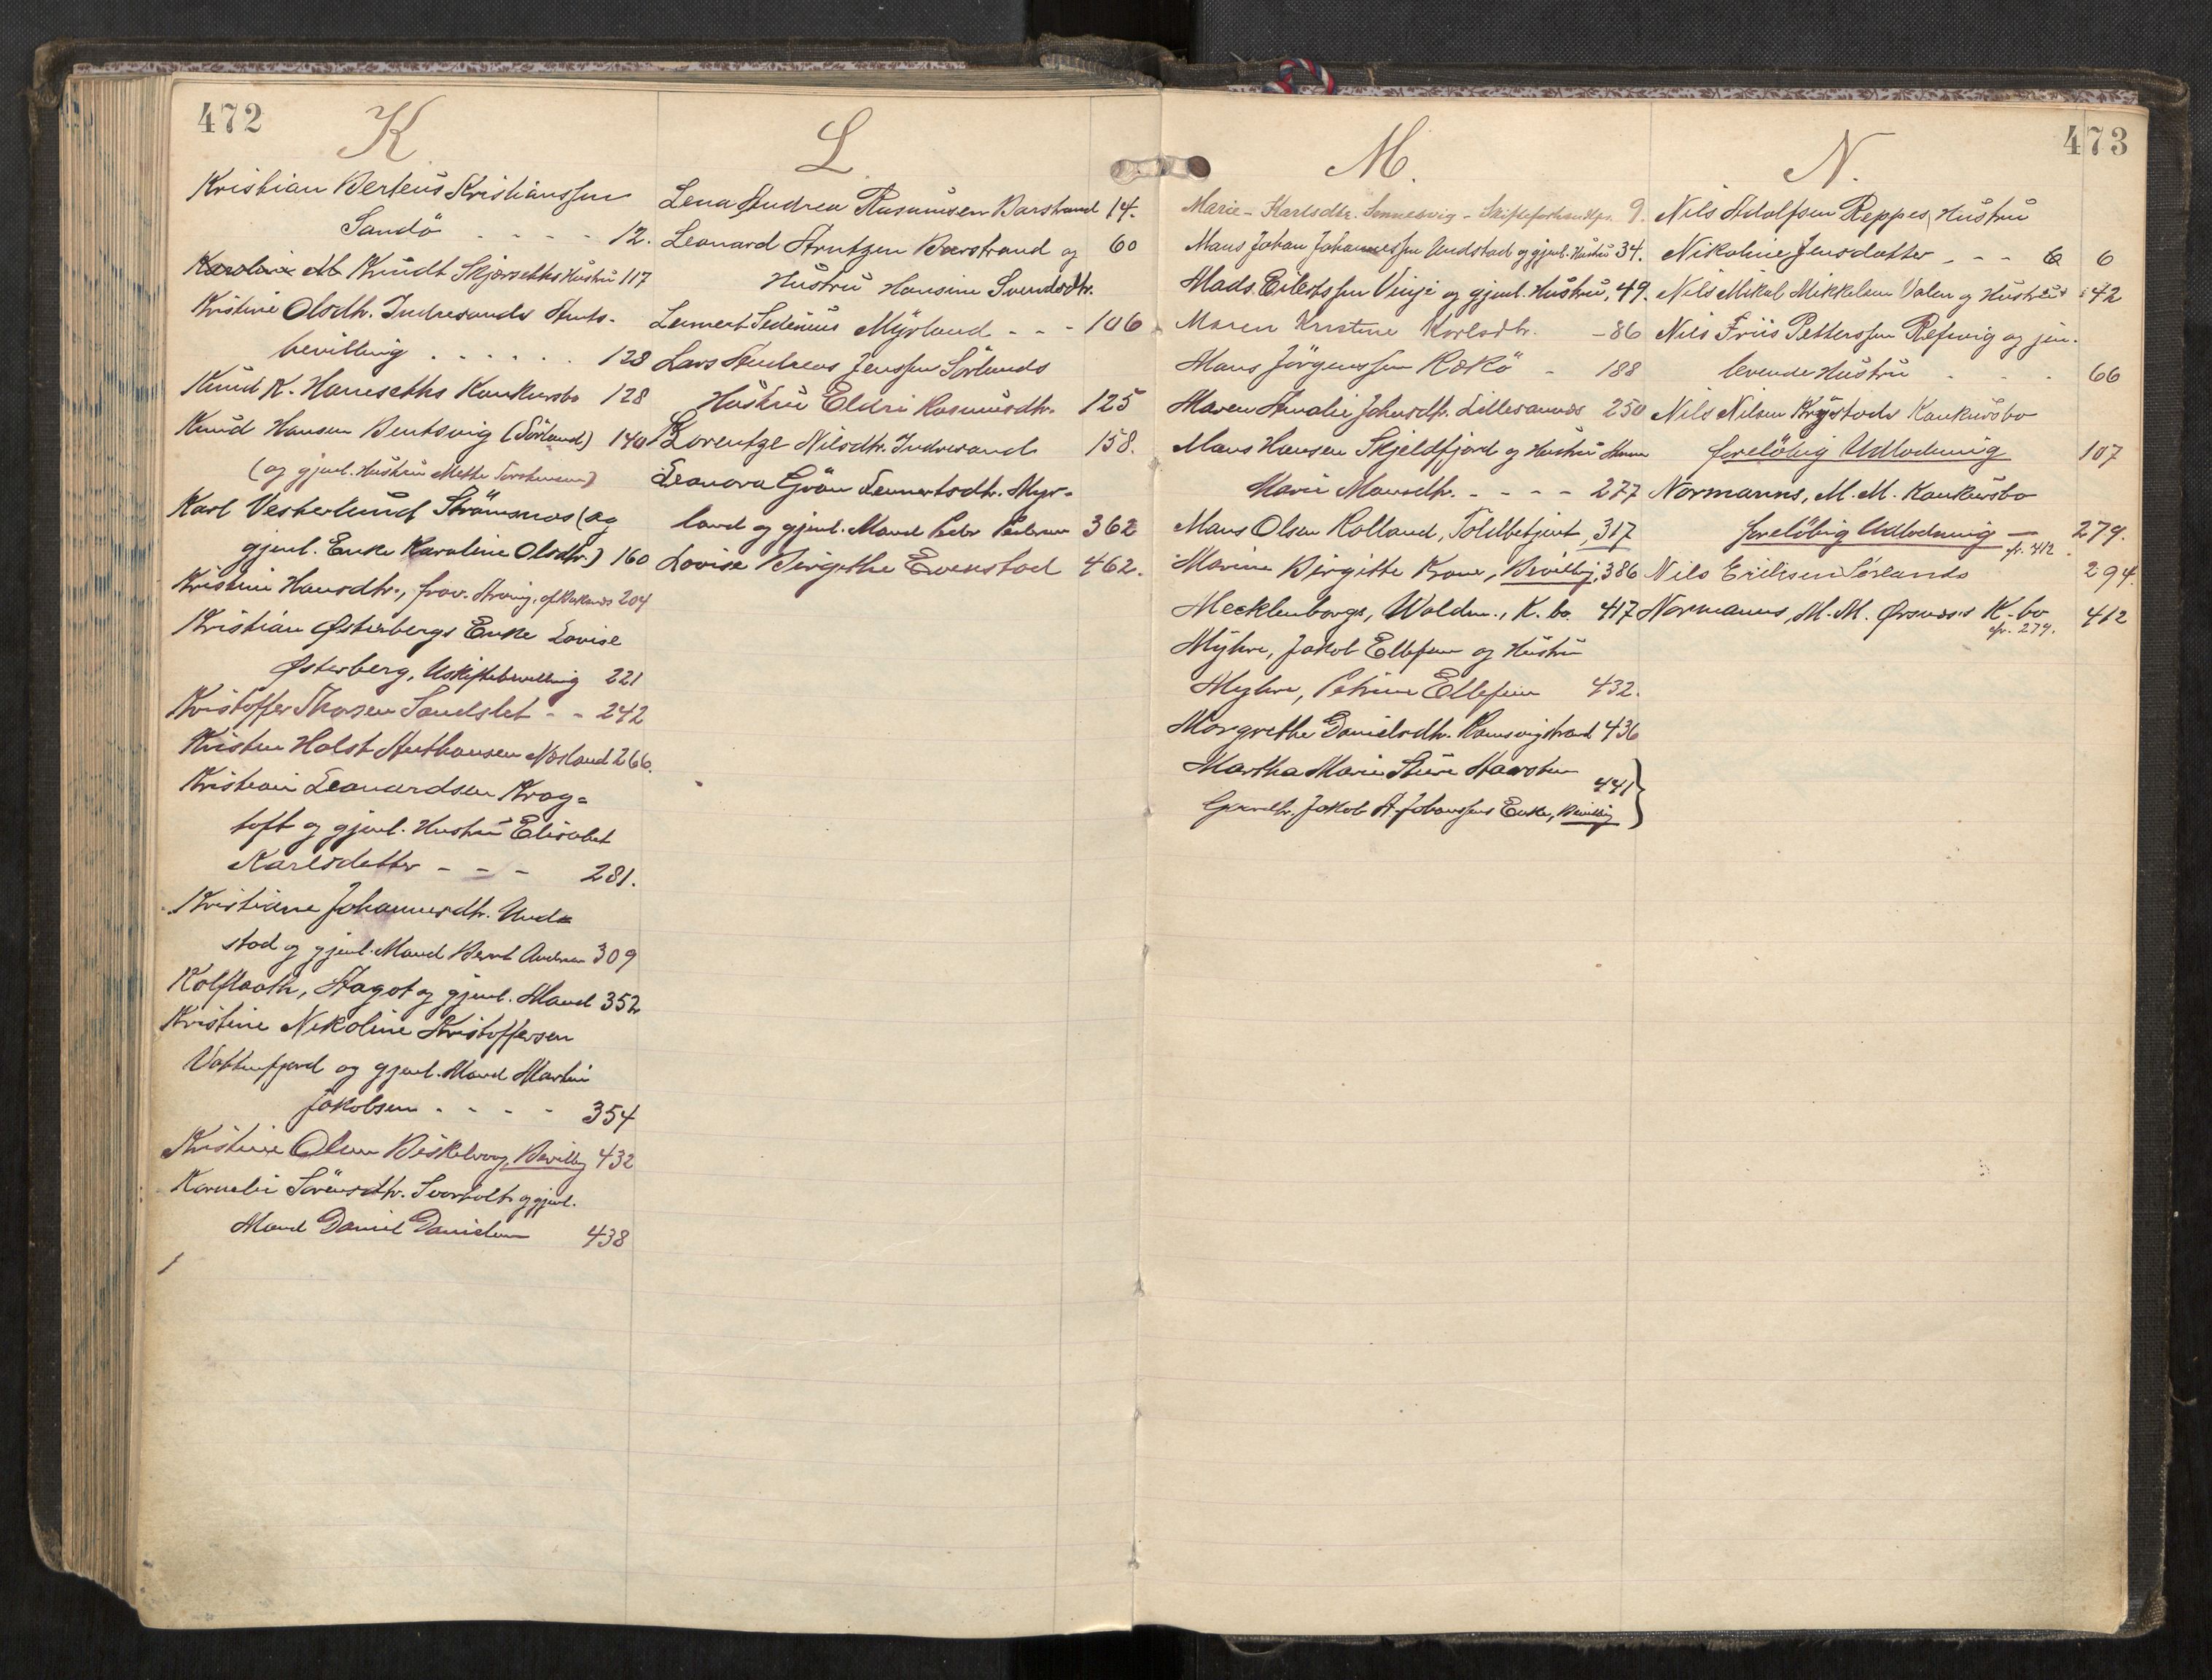 472
K
Kristian Berteus Kristianssen
Sandö - - - - 12.
Karoline M Knudt Skjærseths Hustru 117
Kristine Olsdtr. Indresands Amts-
bevilling . . . . . . 128
Knud K. Hanseths Konkursbo 128
Knud Hansen Bentsvig (Sörland) 140
(og gjenl. Hustru Mette Torstensen)
Karl Vesterlund Strömsnes (og
gjenl. Enke Karoline Olsdtr.) 160
Kristine Hansdtr., frav. Arving, af Buksnes 204
Kristian Østerbergs Enke Lovise
Østerberg, Uskiftebevilling 221
Kristoffer Thosen Sandslet - - 242
Kristen Holst Anthonsen Nösland 266.
Kristian Leonardsen Krag-
toft og gjenl. Hustru Elisabet
Karlsdatter - - - 281.
Kristiane Johannesdtr. Und-
stad og gjenl. Mand Bernt Andersen 309
Kolflaath, Aagot og gjenl. Mand 352
Kristine Nikoline Kristoffersen
Vatterfjord og gjenl. Mand Martin
Jakobsen - - - - 354
Kristine Olsen Biskelvaag, Bevillg 432
Kornelie Sörensdtr. Svarholt og gjenl.
Mand Daniel Danielsen 438
L
Lena Andrea Rasmussen Barstrand 14.
Leonard Arntzen Barstrand og 60
Hustru Hansine Svendsdtr.
Lennert Sedenius Myrland - - - 106
Lars Andreas Jenssen Sörlands
Hustru Eldri Rasmusdtr. 125
Lorentze Nilsdtr. Indresand 158.
Leonora Grön Lennertsdtr. Myr-
land og gjenl. Mand Peder Pedersen 362
Lovise Birgithe Evenstad 462.
M.
Marie Karlsdtr. Sennesvig - Skifteforhandlgn. 9.
Mans Johan Johannessen Undstad og gjenl. Hustru 34.
Mads Eilertssen Vinje og gjenl. Hustru, 49.
Maren Kristine Karlsdtr. - 86
Mans Jörgenssen Rekö - 188
Maren Amalie Johnsdtr. Lillesannes 250
Mans Hansen Skjeldfjord og Hustru Hanna
Marie Mansdtr. - - - - 277
Mans Olsen Rolland, Toldbetjent, 317
Marine Birgitte Krane, Bevillg, 386
Mecklenborgs, Waldm., K. bo. 417
Myhre, Jakob Ellefsen og Hustru
Myhre, Petrine Ellefsen 432.
Margrethe Danielsdtr. Ramsvigstrand 436
Martha Marie Sture Haarsten
441
Gundh. Jakob A. Johanssens Enke, Bevillg
473
N.
Nils Adolfsen Reppes, Hustru
Nikoline Jensdatter - - - 6 6
Nils Mikal Mikkelsen Valen og Hustru 42
Nils Friis Petterssen Refsvig og jen-
levende Hustru . . . 66
Nils Nilsen Krystads Konkursbo
foreløbig Udlodning 107
Normanns, M. M. Konkursbo
foreløbig Udlodning — 279.
jfr. 412.
Nils Eriksen Sörlands 294.
Normanns, M. M. Örsnes's K. bo 412
cfr. 279.